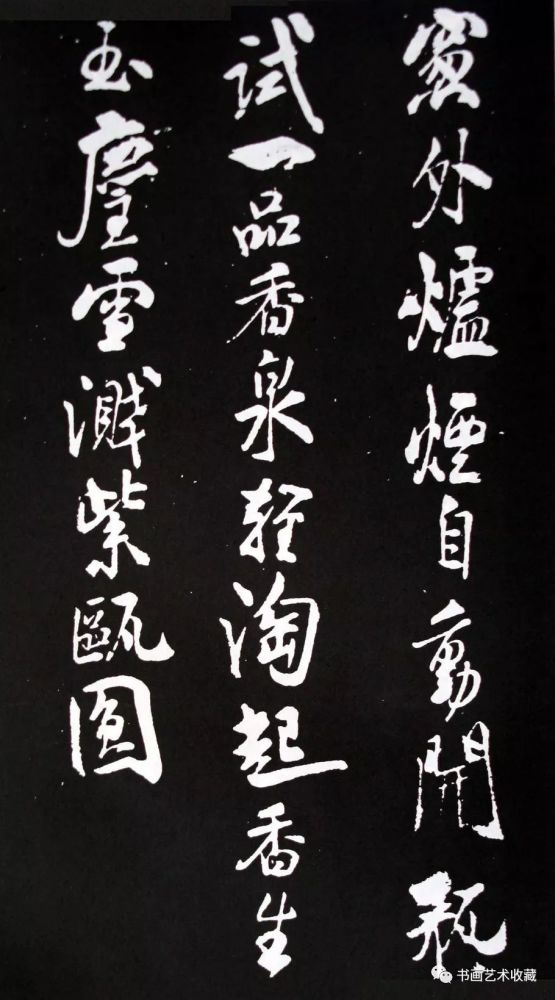 窗外爐煙自動開瓶
試一品香泉輕濤起香生
玉塵雪濺紫甌圓
书画艺术收藏